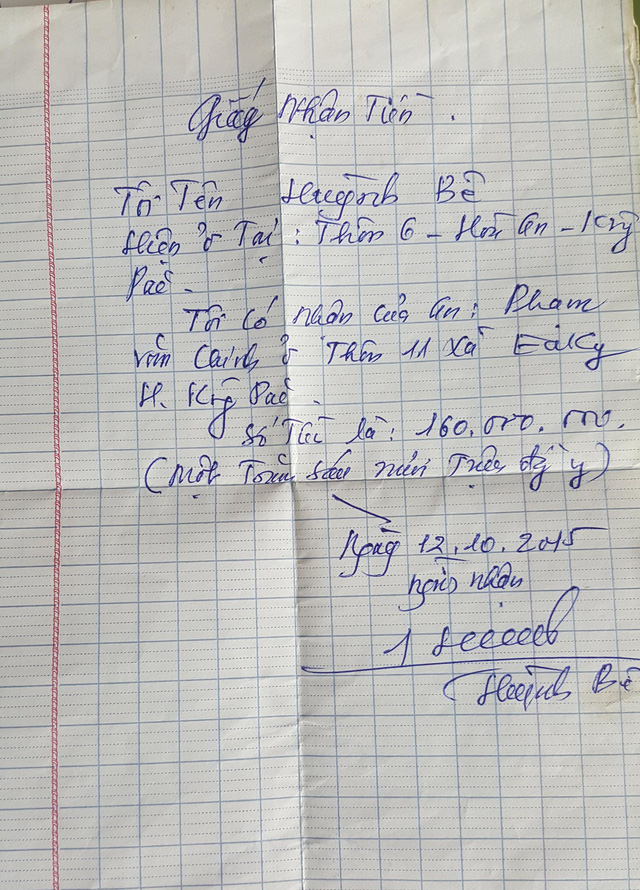 Giấy nhận Tiền.
Tôi Tên Huỳnh Bê
Hiện ở Tại: Thôn 6 - Hoà An - Krông
Pắc -
Tôi Có nhận của an: Phạm
văn Cảnh ở Thôn 11 Xã EaKly
H. Krông Pắc -
Số Tiền là: 160.000.000.
(Một Trăm Sáu mươi Triệu đồng y)
Ngày 12.10.2015
người nhận
Huỳnh Bê